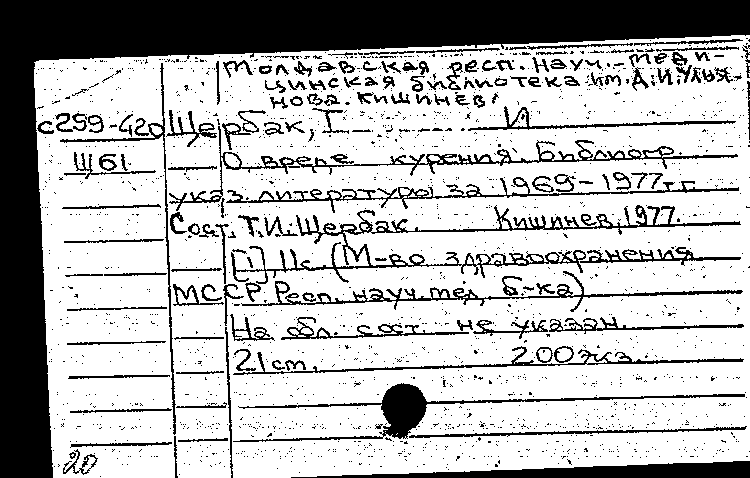 Молдавская респ. науч.-меди-
цинская библиотека им. Д.И.Улья-
нова. Кишинев.
с259-420 Щербак, Т И
Щ61 О вреде курения. Библиогр.
указ. литературы за 1969-1977гг.
Сост. Т.И.Щербак. Кишинев, 1977.
[1], 11с. (М-во здравоохранения
МССР. Респ. науч. мед. б-ка)
На обл. сост. не указан.
21 ст. 200 экз.
20